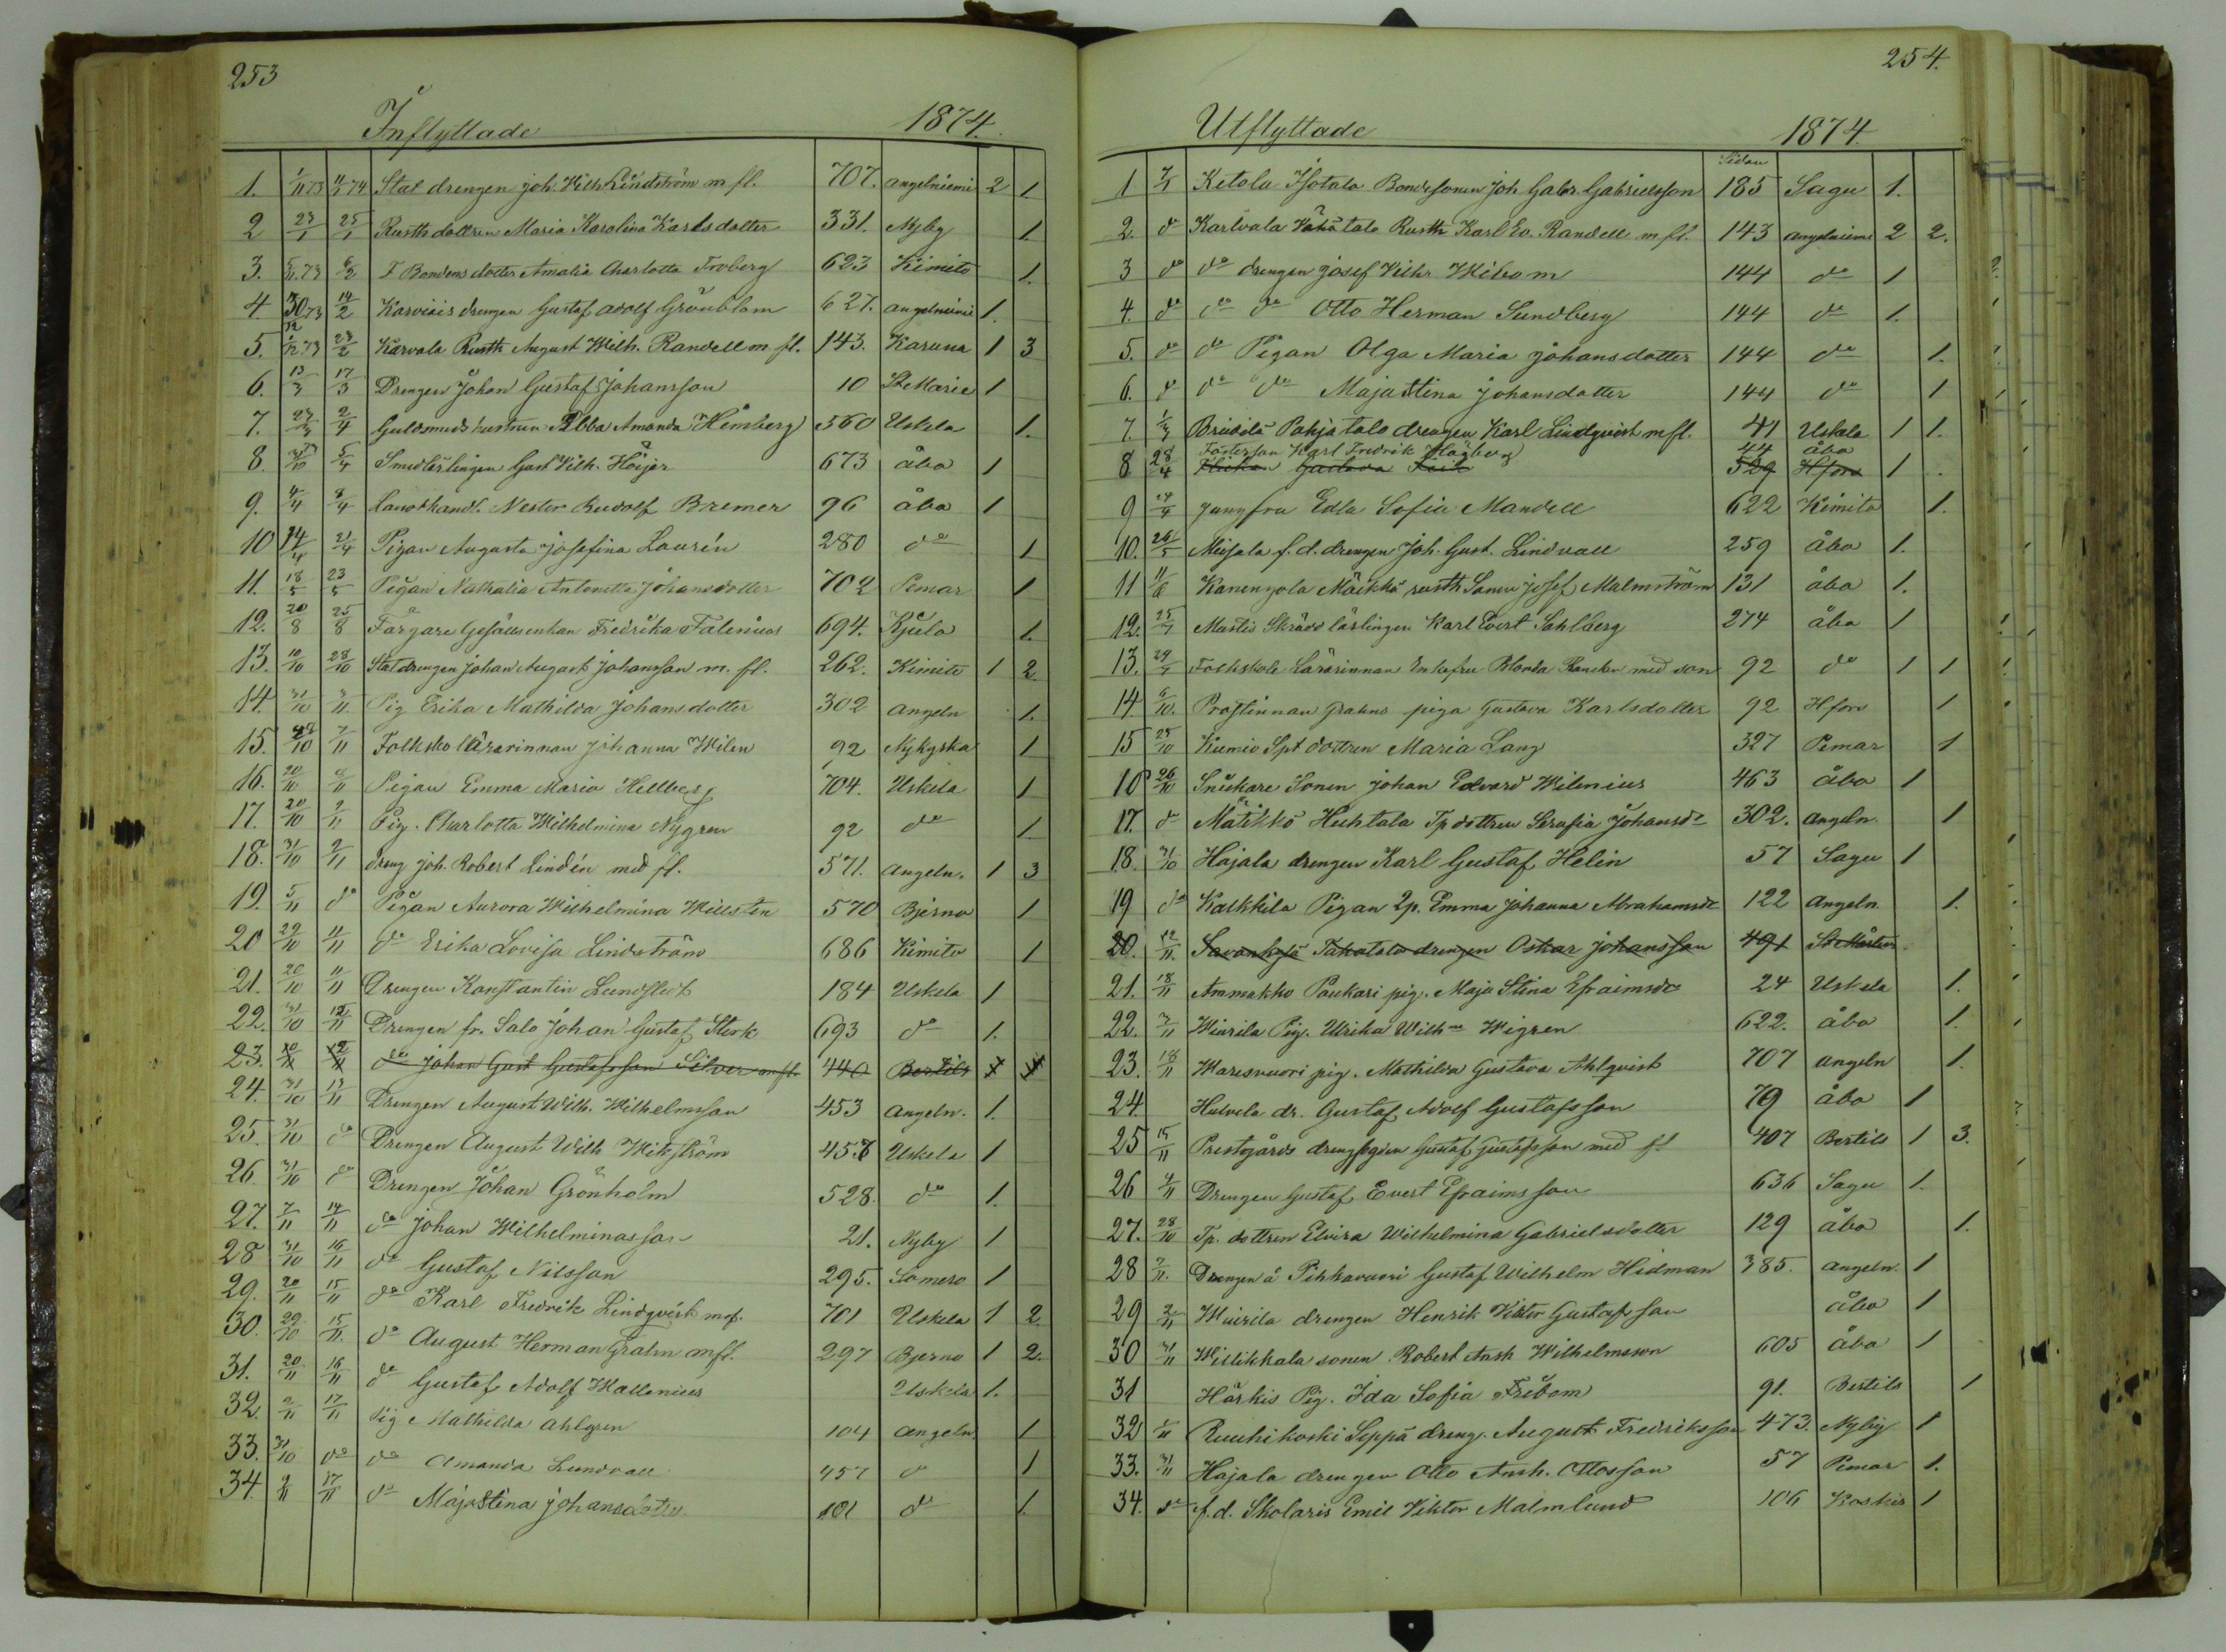 253
Inflyttade 1874.
1. 1/11 73 11/1 74 Stat drengen joh. Wilh Lindström m fl. 707. angelniemi 2 1.
2 23/1 25/1 Rusth dottren Maria Karolina Karlsdotter 331. Nyby 1.
3. 6/2 F Bondens dotter Amalia Charlotta Froberg 623 Kimito 1.
4 14/2 Karviais drengen Gustaf adolf Grönblom 627. angelniemi 1.
5. 23/2 Karvala Rusth August Wilh. Randell m fl. 143. Karuna 1 3
6. 13/3 17/3 Drengen Johan Gustaf Johansson 10 St Marie 1
7. 2/4 Guldsmeds hustrun Ebba Amanda Hemberg 560 Uskela 1.
8. 5/4 Smedlärlingen Gust Wilh. Höijer 673 åbo 1
9. 4/4 8/4 Landthandl. Nestor Rudolf Bremer 96 åbo 1
10 14/4 21/4 Pigan Augusta Josefina Laurén 280 do 1
11. 18/5 23/5 Pigan Nathalia Antonetta Johansdotter 702 Pemar 1
12. 20/8 25/8 Färgare Gesällsenkan Fredrika Falenius 694. Kjulo 1.
13. 10/10 28/10 Statdrengen Johan August Johansson m. fl. 262. Kimito 1 2.
14. 31/10 3/11 Pig Erika Mathilda Johansdotter 302 angeln 1.
15. 7/11 Folkskolärarinnan Johanna Wilen 92 Nykyrka 1
16. 20/10 Pigan Emma Maria Hellberg 704. Uskela 1
17. 20/10 9/11 Pig. Charlotta Wilhelmina Nygren 92 do 1
18. 31/10 9/11 dreng Joh. Robert Lindén med fl. 571. angeln. 1 3
19. 5/11 do Pigan Aurora Wilhelmina Willsten 570 Bjerno 1
20 29/10 11/11 do Erika Lovisa Lindström 686 Kimito 1
21. 20/10 11/11 Drengen Konstantin Lundstedt 184 Uskela 1
22. 31/10 12/11 Drengen fr. Salo Johan Gustaf Stork 693 do 1.
23. 12/11 do Johan Gust Gustafsson Silver m fl. 440 Bertils
24. 31/10 13/11 Drengen August Wilh. Wilhelmsson 453 angeln. 1.
25. 31/10 do Drengen August Wilh Wikström 457 Uskela 1
26. 31/10 do Drengen Johan Grönholm 528. do 1.
27. 7/11 14/11 do Johan Wilhelminasson 21. Nyby 1
28 31/10 16/11 do Gustaf Nilsson 295. Somero 1
29. 20/11 15/11 do Karl Fredrik Lindqvist mf. 701 Uskela 1 2.
30. 29/10 15/11. do August Herman Grahn mfl. 297 Bjerno 1 2.
31. 20/11 16/11 do Gustaf Adolf Wallenius Uskela 1.
32. 9/11 17/11 Pig Mathilda ahlgren 104 angeln. 1
33. 31/10 do do Amanda Lundvall 457 do 1
34. 2/11 17/11 do Maja Stina Johansdotter 101 do 1.
254.
Utflyttade 1874.
Sidan
1 7/1 Ketola Isotalo Bondesonen Joh Gabr. Gabrielsson 185 Sagu 1.
2. do Karlvala Vähätalo Rusth Karl Ev. Randell m fl. 143 angelniemi 2 2.
3 do do drengen Josef Wilh. Wibom 144 do 1
4. do do do Otto Herman Sundberg 144 do 1.
5. do do Pigan Olga Maria Johansdotter 144 do 1.
6. do do do Maja Stina Johansdotter 144 do 1
7. 1/3 Pahjatalo drengen Karl Lindqvist mfl. 41 Uskela 1 1.
Karl Fredrik Hägberg 44 åbo
8 28/4 Flickan Gustava 529 Hfors 1
9 24/4 Jungfru Edla Sofia Mandell 622 Kimito 1.
10. 26/5 Meisala f. d. drengen Joh. Gust. Lindvall 259 åbo 1.
11 11/6 Kanengola Märkkö rusth Sonen Josef Malmström 131 åbo 1.
12. 25/7 Mustis Skräddlärlingen Karl Evert Sahlberg 274 åbo 1
13. 24/7 Folkskole Lärarinnan Enkefru Blenda med son 92 do 1 1
14. 6/10. Prostinnan Grahns piga Gustava Karlsdotter 92 Hfors 1
15 25/10 Kumio Spt dottren Maria Lang 327 Pemar 1
16 26/10 Snickare Sonen Johan Edvard Wilenius 463 åbo 1
17. do Märkkö Huhtala Tp dottren Serafia Johansdr 302. angeln. 1
18. 31/10 Hajala drengen Karl Gustaf Helin 57 Sagu 1
19 do Kalkkila Pigan Emma Johanna Abrahamsdr 122 angeln. 1.
20. 12/11. Tahatalo drengen Oskar Johansson 491 St Mårtens
21. 18/11 Ammakko Paukari pig. Maja Stina Efraimsdr 24 Uskela 1.
22. 3/11 Wiurila Pig. Ulrika Wilhna Wigren 622. åbo 1.
23. 18/11 Waresvuori pig. Mathilda Gustava Ahlqvist 707 angeln 1.
24. Hulvela dr. Gustaf Adolf Gustafsson 79 åbo 1
25 15/11 Prestgårds Gustaf Gustafsson med fl 407 Bertils 1 3.
26 4/11 Drengen Gustaf Evert Efraimsson 636 Sagu 1.
27. 28/10 Tp. dottren Elvira Wilhelmina Gabrielsdotter 129 åbo 1.
28 7/11. Drengen å Pihkavuori Gustaf Wilhelm Hidman 385. angeln. 1
29 2/11 Wiurila drengen Henrik Viktor Gustafsson åbo 1
30 31/11 Willikkala sonen Robert Ansh Wilhelmsson 605 åbo 1
31 Härkis Pig. Ida Sofia Fribom 91. Bertils 1
32 Ruuhikoski Seppä dreng. August Fredriksson 473. Nyby 1
33. 31/11 Hajala drengen Otto Ansh. Ottosson 57 Pemar 1.
34. do f. d. Skolaris Emil Viktor Malmlund 106 Koskis 1